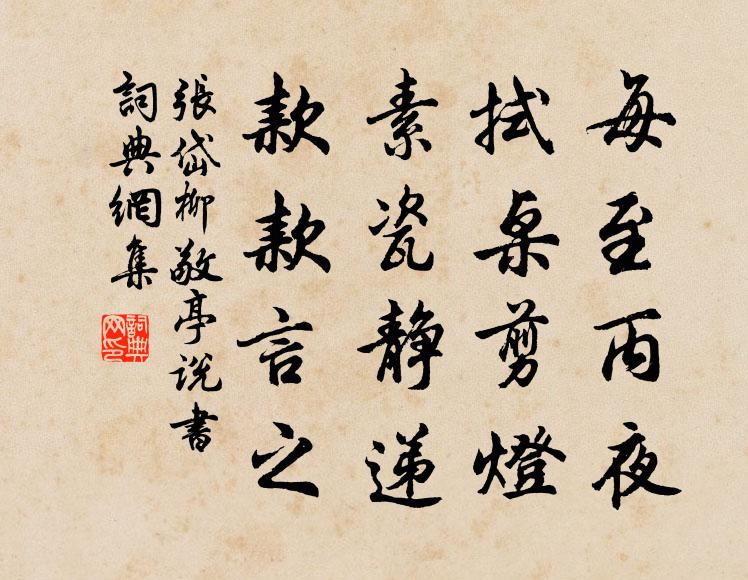 每至丙夜
拭桌剪燈
素瓷静递
款款言之
張岱柳敬亭说書
詞典網集
詞典网印